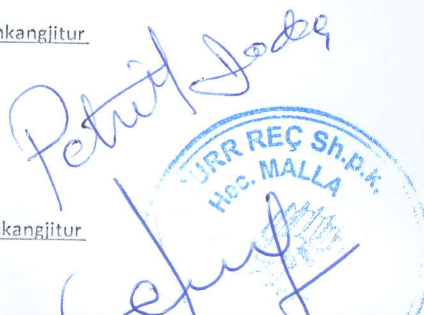 nkangjitur
Petrit Doda
URR REÇ Sh.p.k.
Hec. MALLA
nkangjitur